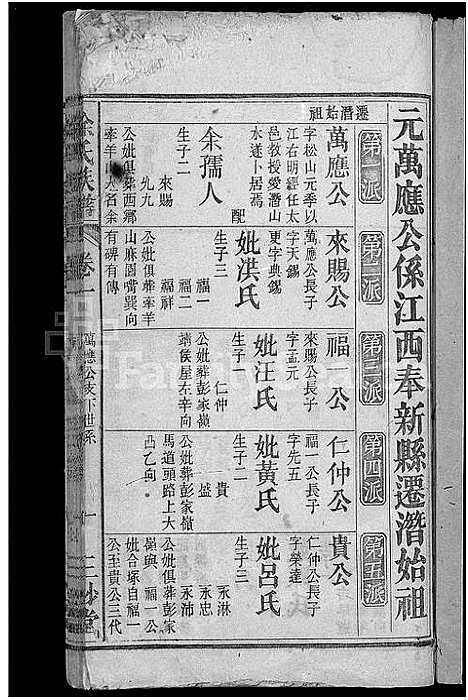 元萬應公係江西奉新縣遷潛始祖
第一派
遷潛始祖
萬應公
字松山元季以
江右明經任太
邑教授愛潛山
水遂卜居焉
配
余孺人
生子二
來賜
九九
公妣俱葬西鄉
牽羊山人名余
第二派
來賜公
萬應公長子
字天錫
更字典錫
妣洪氏
生子三
福一
福祥
公妣俱葬牽羊
山麻園嘴巽向
有碑有傳
第三派
福公
來賜公長子
字孟元
妣汪氏
生子
仁仲
公妣葬彭家嶺
蕭侯屋左辛向
第四派
仁仲公
福一公長子
字先五
妣黃氏
生子二
貴
盛
公妣葬彭家嶺
馬道頭路上大
凸乙向
第五派
貴公
仁仲公長子
字榮達
妣呂氏
生子三
永淋
永忠
永沛
公妣俱葬彭家
嶺與福一公
妣合塚自福一
公至貴公三代
余氏族譜
卷一
萬應公支下世系
一